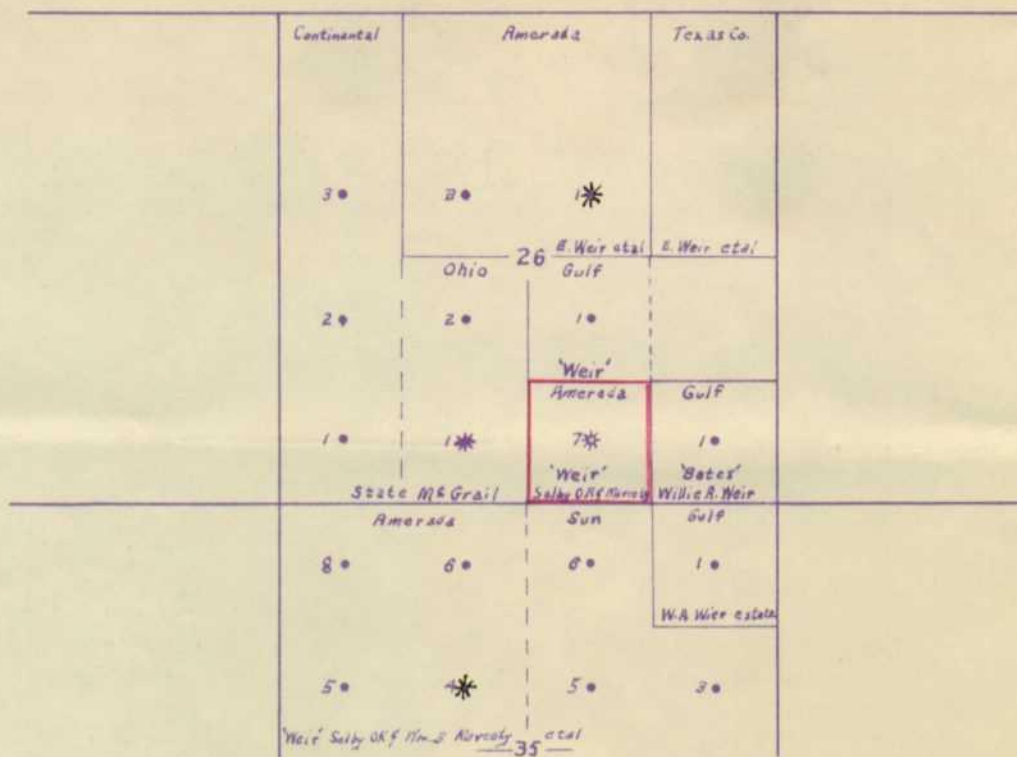 Continental Amerada Texas Co.
3 3 1
26 E. Weir etal E. Weir etal
Ohio Gulf
2 2 1
'Weir'
Amerada Gulf
1 1 7 1
'Weir' 'Bates'
State McGrail Selby OK & Willie R. Weir
Amerada Sun Gulf
8 6 6 1
W.A Wier estate
5 4 5 3
'Weir' Selby OK & etal
35